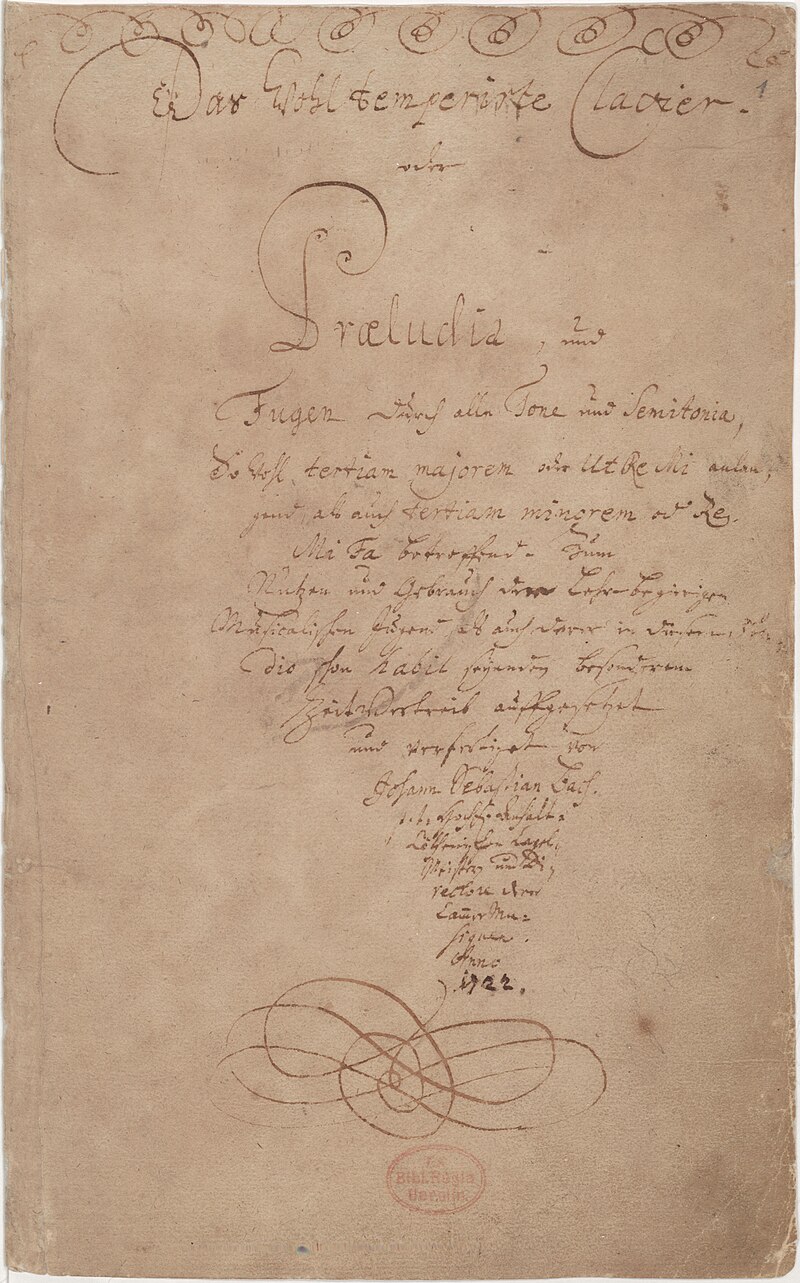 Das Wohltemperirte Clavier.
oder
Præludia, und
Fugen durch alle Tone und Semitonia,
So wohl tertiam majorem oder Ut Re Mi anlan-
gend, als auch tertiam minorem od Re
Mi Fa betreffend. Zum
Nutzen und Gebrauch der Lehr-begierigen
Musicalischen Jugend, als auch derer in diesem stu-
dio schon habil seyenden besonderem
ZeitVertreib auffgesetzet
und verfertiget von
Johann Sebastian Bach.
p. t. HochF. Anhalt-
Cöthenischen Capel-
Meistern und Di-
rectore derer
CammerMu-
siquen.
Anno
1722.
Bibl. Regia
Berolin.